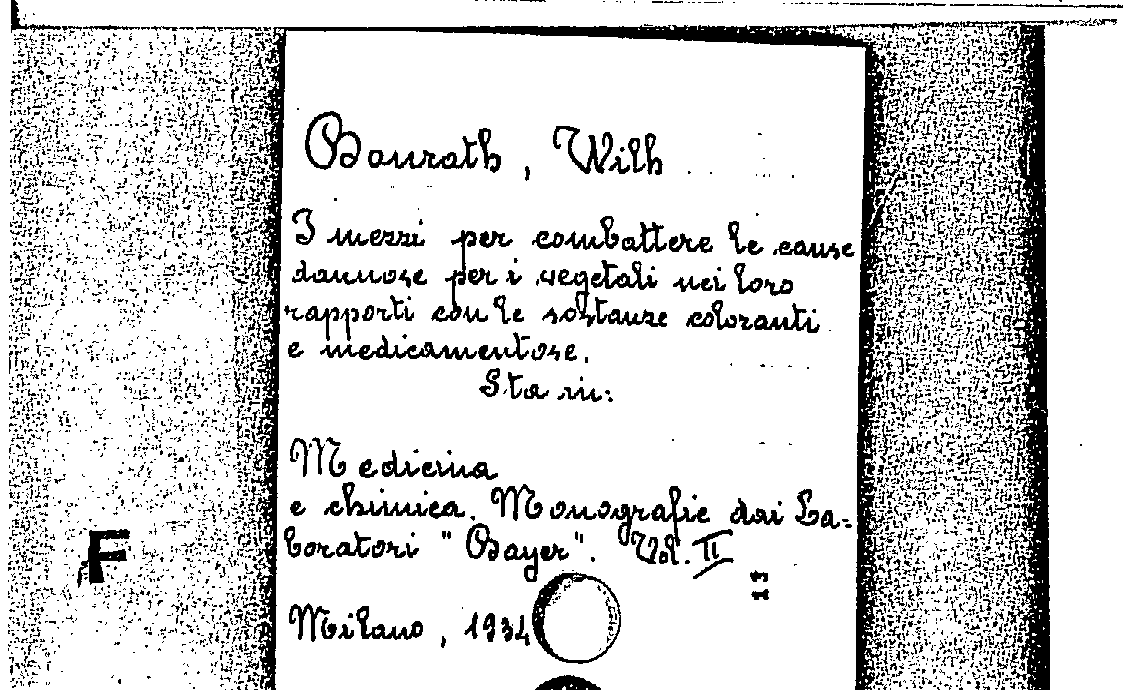 Bonrath, Wilh
I mezzi per combattere le cause
dannose per i vegetali nei loro
rapporti con le sostanze coloranti
e medicamentose.
Sta in:
Medicina
e chimica. Monografie dai La=
boratori "Bayer". Vol. II
Milano, 1934
F